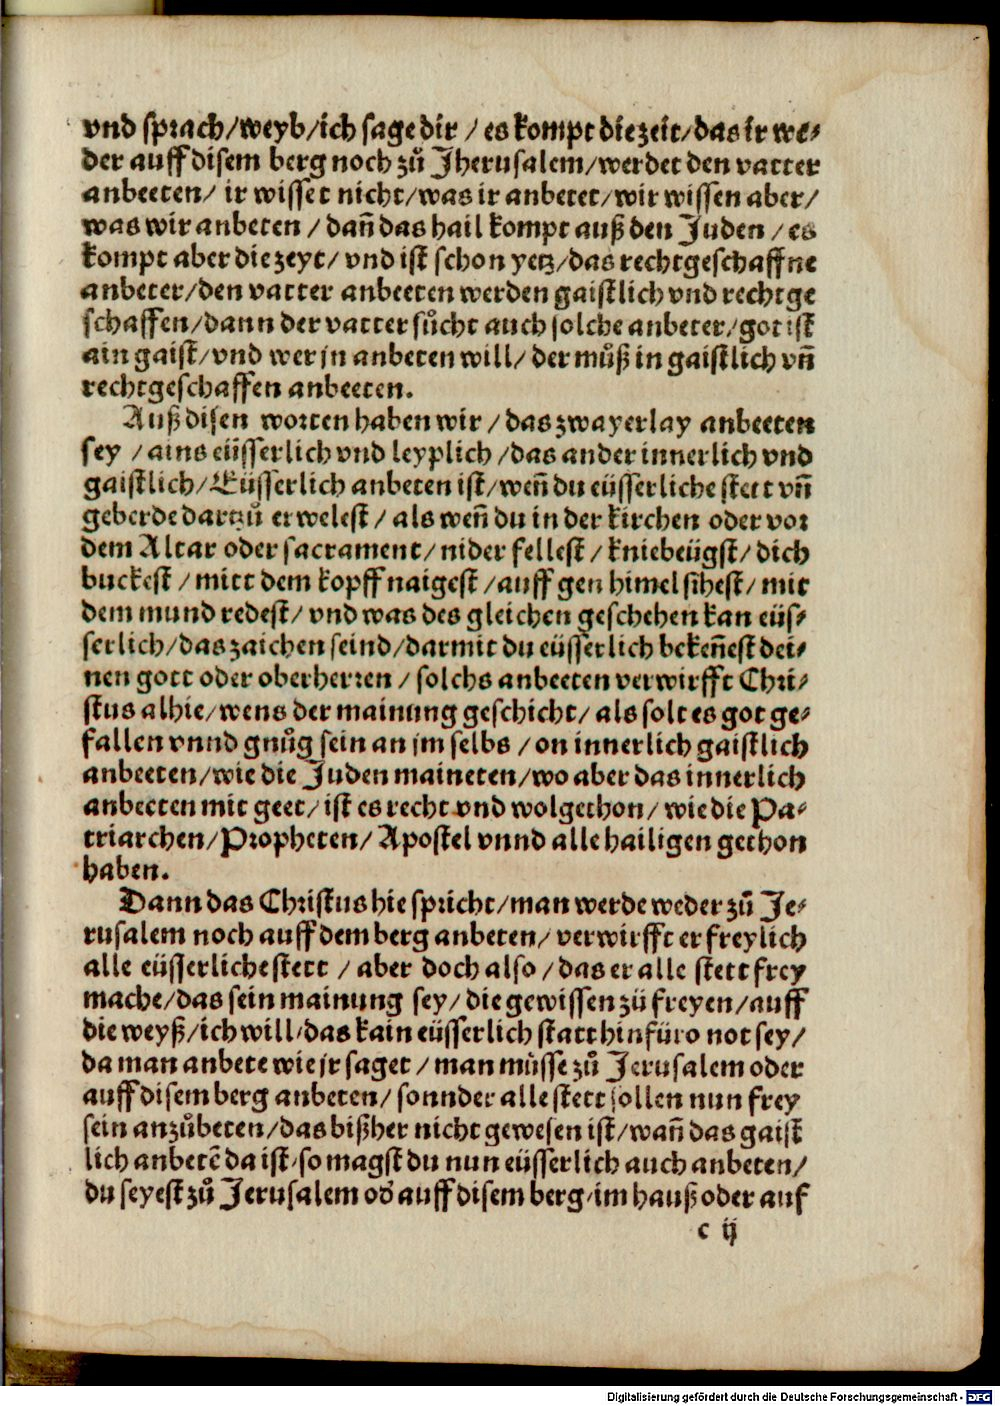 vnd sprach/weyb/ich sage dir / es kompt die zeit/das ir we⸗
der auff disem berg noch zuͦ Jherusalem/werdet den vatter
anbeeten/ ir wisset nicht/was ir anbetet/wir wissen aber/
was wir anbeten / dañ das hail kompt auß den Juden / es
kompt aber die zeyt/ vnd ist schon yetz/das rechtgeschaffne
anbeter/den vatter anbeeten werden gaistlich vnd rechtge
schaffen/dann der vatter suͦcht auch solche anbeter/got ist
ain gaist/vnd wer jn anbeten will/ der muͦß in gaistlich vñ
rechtgeschaffen anbeeten.
Auß disen worten haben wir / das zwayerlay anbeeten
sey / ains eüsserlich vnd leyplich /das ander innerlich vnd
gaistlich/Eüsserlich anbeten ist/weñ du eüsserliche stett vñ
geberde dartzuͦ erwelest / als weñ du in der kirchen oder vor
dem Altar oder sacrament/ nider fellest / kniebeügst/ dich
buckest / mitt dem kopff naigest /auff gen himel sihest/ mit
dem mund redest/ vnd was des gleichen geschehen kan eüs⸗
serlich/das zaichen seind/darmit du eüsserlich bekeñest dei⸗
nen gott oder oberherren / solchs anbeeten verwirfft Chri⸗
stus alhie/wens der mainung geschicht/ als solt es got ge⸗
fallen vnnd gnuͦg sein an jm selbs / on innerlich gaistlich
anbeeten/wie die Juden maineten/wo aber das innerlich
anbeeten mit geet/ist es recht vnd wolgethon/ wie die Pa⸗
triarchen/Propheten/ Apostel vnnd alle hailigen gethon
haben.
Dann das Christus hie spricht/man werde weder zuͦ Je⸗
rusalem noch auff dem berg anbeten/ verwirfft er freylich
alle eüsserliche stett / aber doch also /das er alle stett frey
mache/das sein mainung sey/die gewissen zuͤ freyen/auff
die weyß/ich will/das kain eüsserlich statt hinfüro not sey/
da man anbete wie jr saget / man müsse zuͦ Jerusalem oder
auff disem berg anbeten/ sonnder alle stett sollen nun frey
sein anzuͦbeten/das bißher nicht gewesen ist/wañ das gaist
lich anbetē da ist/so magst du nun eüsserlich auch anbeten/
du seyest zuͦ Jerusalem od' auff disem berg/im hauß oder auf
c ij
Digitalisierung gefördert durch die Deutsche Forschungsgemeinschaft - DFG